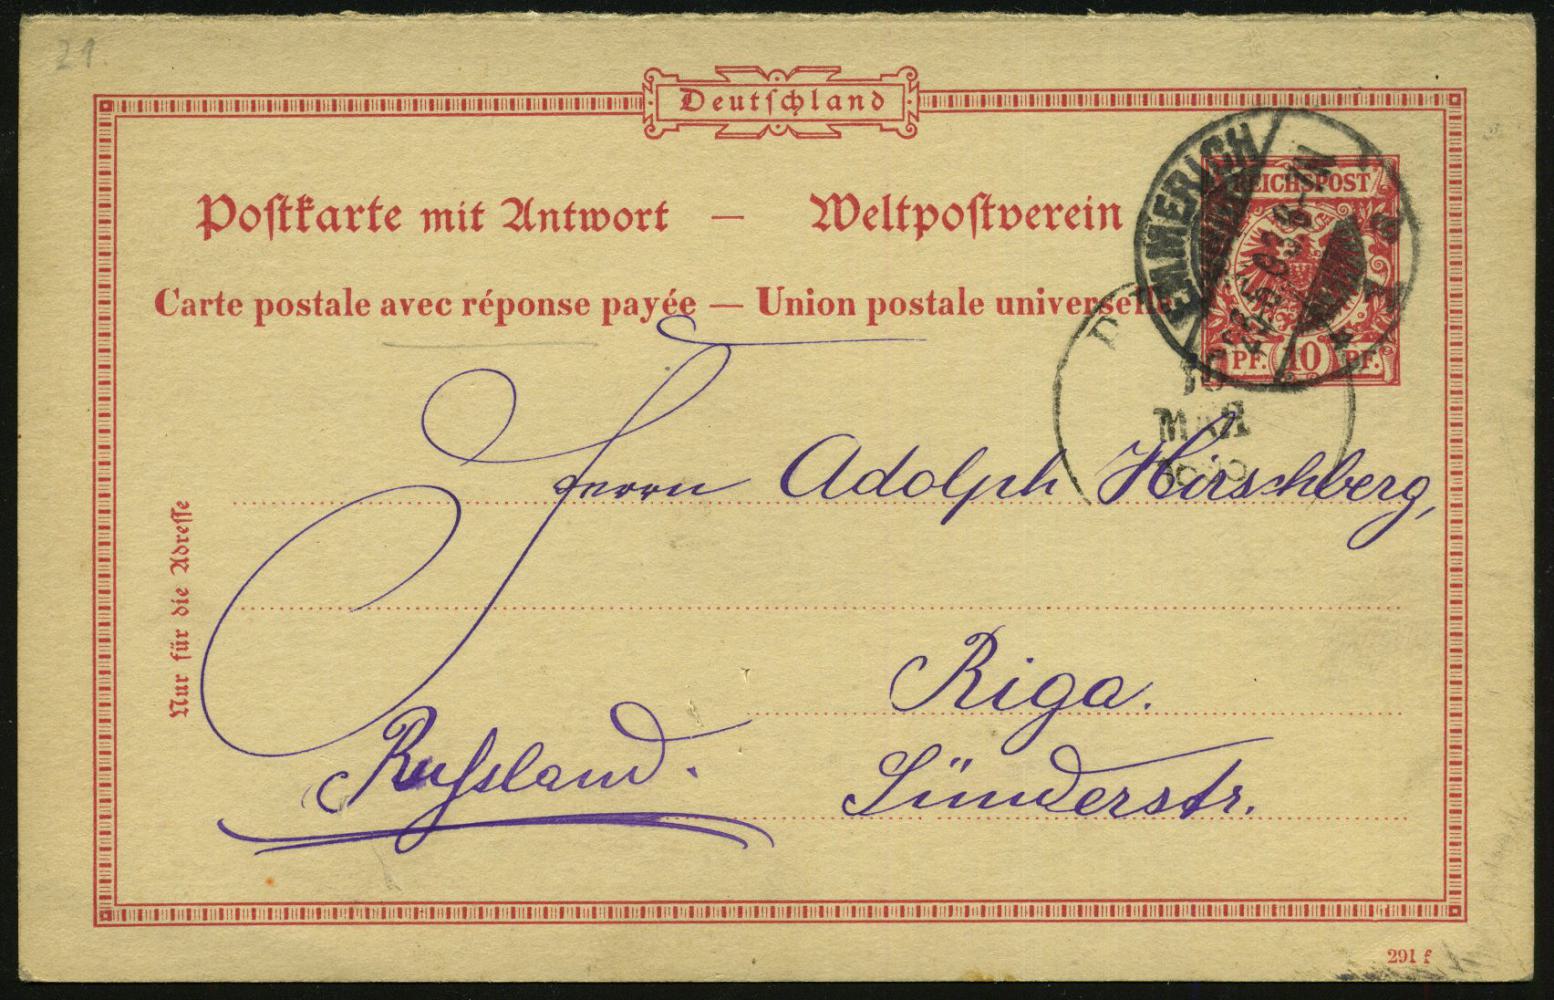 21.
Deutſchland
Poſtkarte mit Antwort — Weltpoſtverein
Carte postale avec réponse payée — Union postale universelle
EMMERICH
REICHSPOST
PF. 10 PF.
10
MAR
Herrn Adolph Hirschberg,
Nur für die Adreſſe
Riga.
Russland.
Sünderstr.
291 f